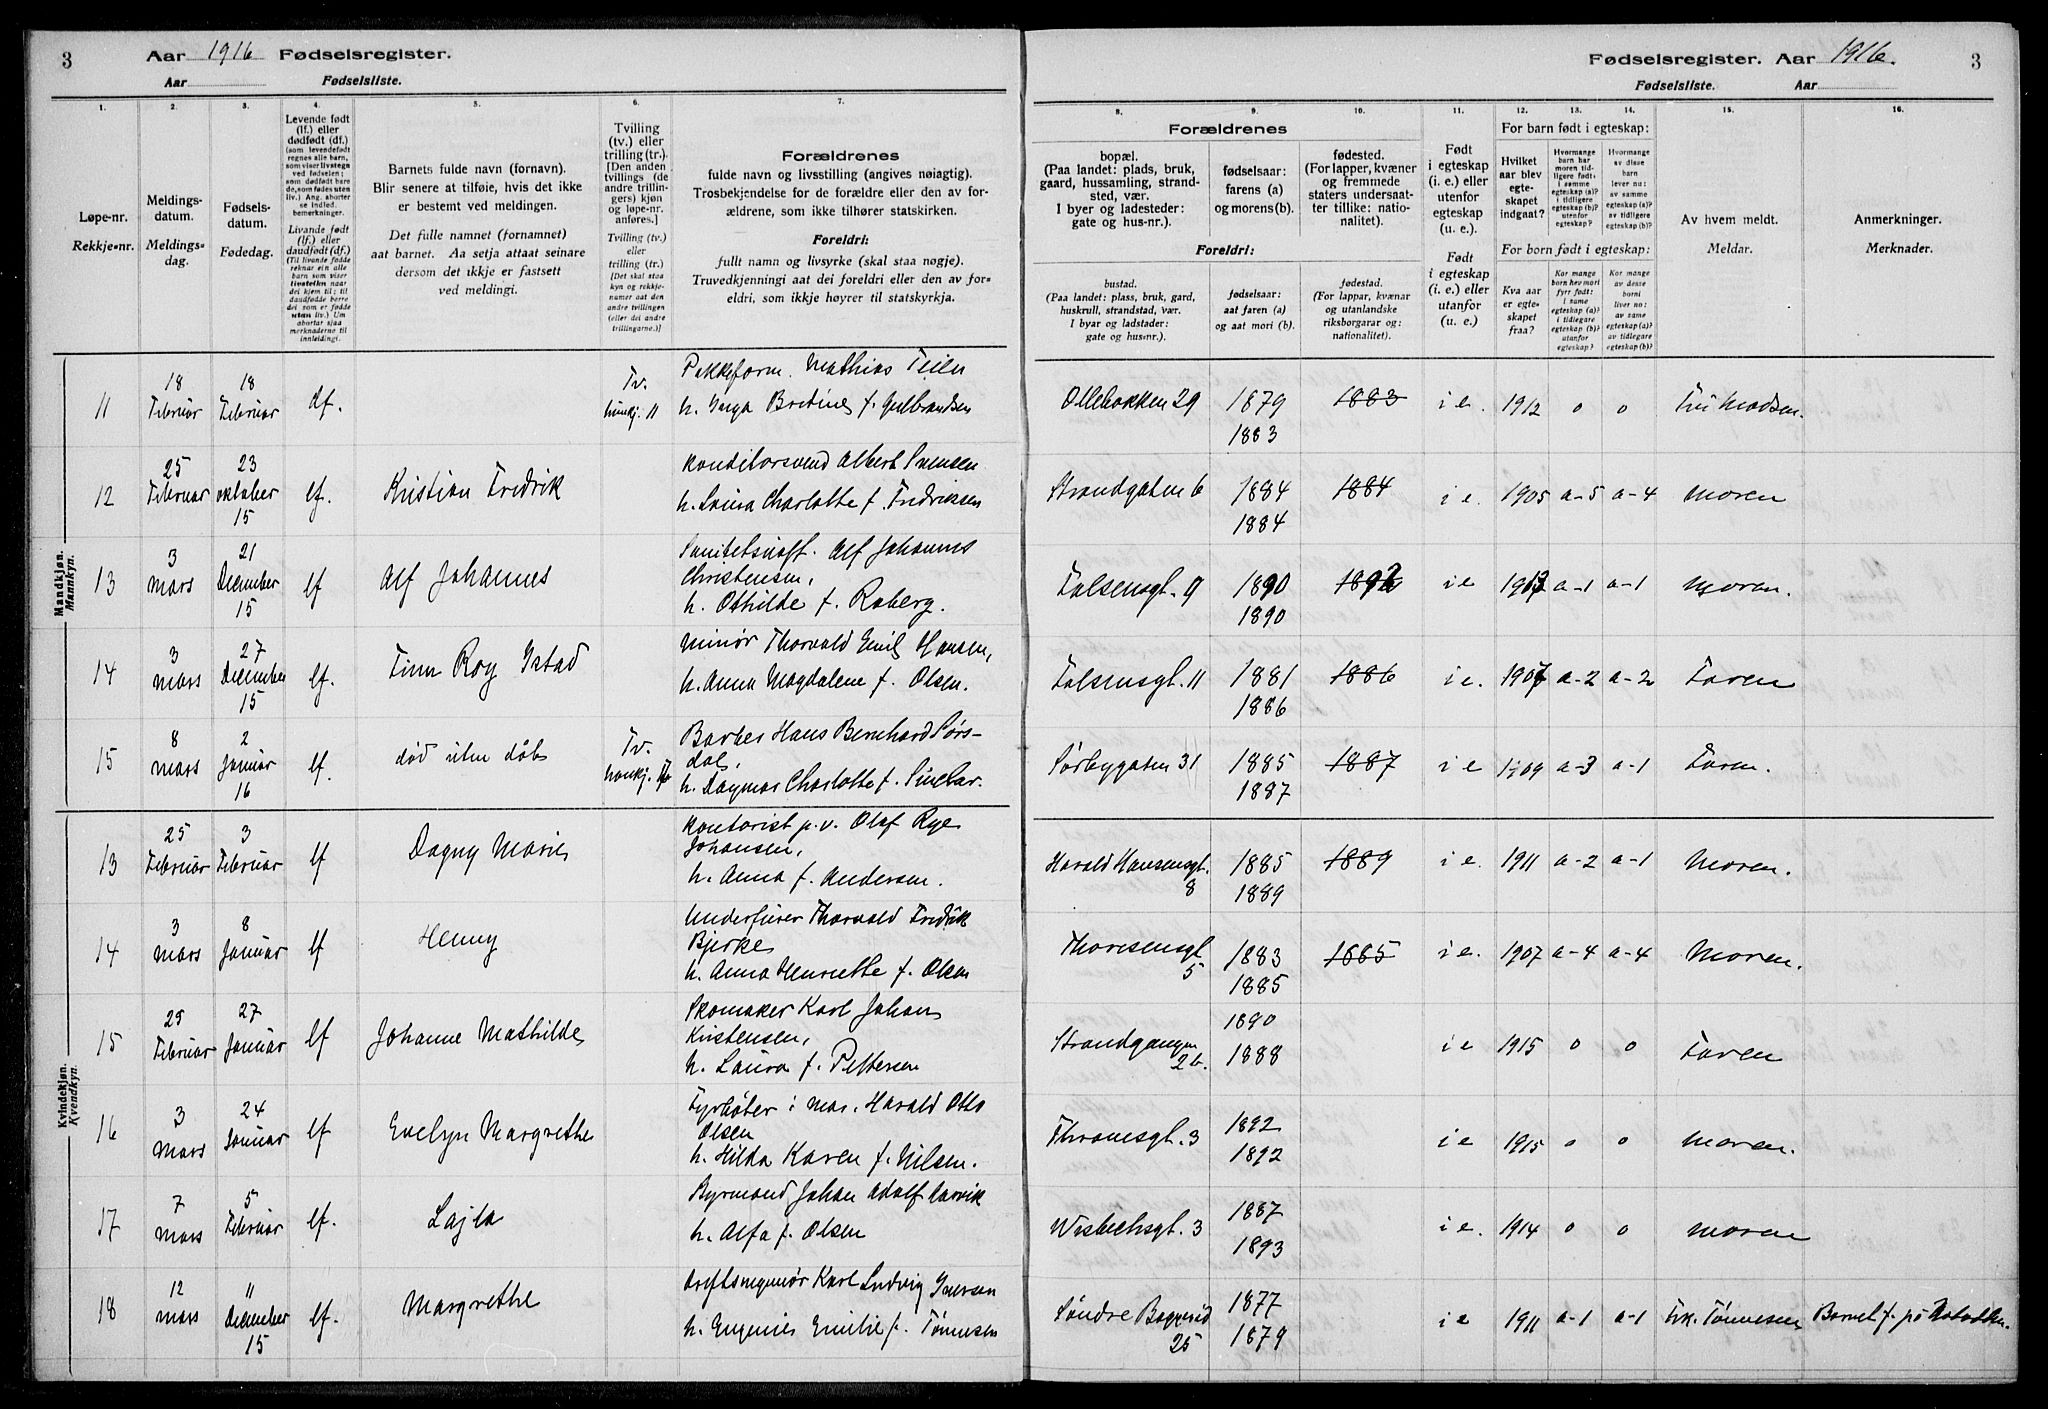 3
Aar 1916 Fødselsregister.
Aar Fødselsliste.
Fødselsregister. Aar 1916.
3
Fødselsliste. Aar
1. 2. 3. 4. 5. 6. 7.
Løpe-nr.
Rekkje-nr.
Meldings-
datum.
Meldings-
dag.
Fødsels-
datum.
Fødedag.
Levende født
(lf.) eller
dødfødt (df.)
(som levendefødt
regnes alle barn,
som viser livstegn
ved fødselen;
som dødfødt bare
de, som fødes uten
liv.) Ang. aborter
se indled.
bemerkninger.
Livande født
(lf.) eller
daudfødt (df.)
(Til livande fødde
reknar ein alle
barn som viser
livsteikn naar
dei kjem til; til
daudfødde berre
dei som er fødde
utan liv.) Um
abortar sjaa
merknaderne til
innleidingi.
Barnets fulde navn (fornavn).
Blir senere at tilføie, hvis det ikke
er bestemt ved meldingen.
Det fulle namnet (fornamnet)
aat barnet. Aa setja attaat seinare
dersom det ikkje er fastsett
ved meldingi.
Tvilling
(tv.) eller
trilling (tr.)
[Den anden
tvillings (de
andre trillin-
gers) kjøn
og løpe-nr.
anføres.]
Tvilling (tv.)
eller
trilling (tr.)
[Det skal staa
kyn og rekkje-
numer aat den
andre tvillingen
(eller dei andre
trillingarne.)]
Forældrenes
fulde navn og livsstilling (angives nøiagtig).
Trosbekjendelse for de forældre eller den av for-
ældrene, som ikke tilhører statskirken.
Foreldri:
fullt namn og livsyrke (skal staa nøgje).
Truvedkjenningi aat dei foreldri eller den av for-
eldri, som ikkje høyrer til statskyrkja.
8. 9. 10. 11. 12. 13. 14. 15. 16.
Forældrenes
bopæl.
(Paa landet: plads, bruk,
gaard, hussamling, strand-
sted, vær.
I byer og ladesteder:
gate og hus-nr.).
fødselsaar:
farens (a)
og morens (b).
fødested.
(For lapper, kvæner
og fremmede
staters undersaat-
ter tillike: natio-
nalitet).
Foreldri:
bustad.
(Paa landet: plass, bruk, gard,
huskrull, strandstad, vær.
I byar og ladstader:
gate og hus-nr.).
fødselsaar:
aat faren (a)
og aat mori (b).
fødestad.
(For lappar, kvænar
og utanlandske
riksborgarar og:
nationalitet).
Født
i egteskap
(i. e.) eller
utenfor
egteskap
(u. e.).
Født
i egteskap
(i. e.) eller
utanfor
(u. e.).
For barn født i egteskap:
Hvilket
aar blev
egte-
skapet
indgaat?
Hvormange
barn har
moren tid-
ligere født:
i samme
egteskap (a)?
i tidligere
egteskap (b)?
utenfor
egteskap?
Hvormange
av disse
barn
lever nu:
av samme
egteskap (a)?
av tidligere
egteskap (b)?
For born født i egteskap:
Kva aar
er egte-
skapet
fraa?
Kor mange
born hev mori
fyrr født:
i same
egteskap (a)?
i tidlegare
egteskap (b)?
utanfor
egteskap?
Kor mange
av desse
borni
liver no:
av same
egteskap (a)?
av tidlegare
egteskap (b)?
Av hvem meldt.
Meldar.
Anmerkninger.
Merknader.
Mandkjøn.
Mannkyn.
11 18 Februar 18 Februar df. Tv. kvinkj. 11
Mathias
h. Inga f. Gulbrandsen
Ollebakken 29 1879 1883 1883 i e. 1912 o o Madsen.
12 25 Februar 23 oktober 15 lf. Kristian Fredrik
Konditorsvend Albert Svensen
h. Lovisa Charlotte f. Fredriksen
Strandgaten 6 1884 1884 1884 i e. 1905 a-5 a-4 Moren
13 3 mars 21 December 15 lf Alf Johannes
Alf Johannes
Christensen,
h. Othilde f. Roberg.
Falsensgt. 9 1890 1890 i e a-1 a-1 Moren.
14 3 mars 27 December 15 lf. Finn Roy Istad
Minør Thorvald Emil Hansen,
h. Anna Magdalene f. Olsen.
Falsensgt. 11 1881 1886 1886 i e. a-2 a-2 Faren
15 8 mars 2 Januar 16 lf. død uten dåb Tv.
Barber Hans Bernhard Sørs-
dal,
h. Dagmar Charlotte f.
Sørbygaten 31 1885 1887 1887 i e 1909 a-3 a-1 Faren.
Kvindekjøn.
Kvendkyn.
13 25 Februar 3 Februar lf Dagny Marie
Kontorist p.v. Olaf Rye
Johansen,
h. Anna f. Andersen.
Harald Hansensgt. 8 1885 1889 1889 i e. 1911 a-2 a-1 Moren.
14 3 mars 8 Januar lf Henny
Thorvald Fredrik
Bjerke
h. Anna Henriette f. Olsen
Thoresensgt. 5 1883 1885 1885 i e. 1907 a-4 a-4 Moren.
15 25 Februar 27 Januar lf Johanne Mathilde
Skomaker Karl Johan
Kristensen,
h. Laura f. Pettersen
Strandgangen 2b. 1890 1888 i e 1915 o o Faren
16 3 mars 24 Januar lf Evelyn Margrethe
Fyrbøter i mar. Harald Otto
Olsen
h. Hilda Karen f. Nilsen.
Thranesgt. 3 1892 1892 i e 1915 o o Moren.
17 7 mars 5 Februar lf. Lajla
Styrmand Johan Adolf Larvik
h. Alfa f. Olsen
Wisbechsgt. 3 1887 1893 i e. 1914 o o Moren
18 12 mars 11 December 15 lf. Margrethe
Driftsingeniør Karl Ludvig Iversen
h. Eugenie Emilie f. Tønnesen
Søndre Baggerød 25 1877 1879 i e 1911 a-1 a-1 Frk. Tønnesen Barnet f. på Notodden.